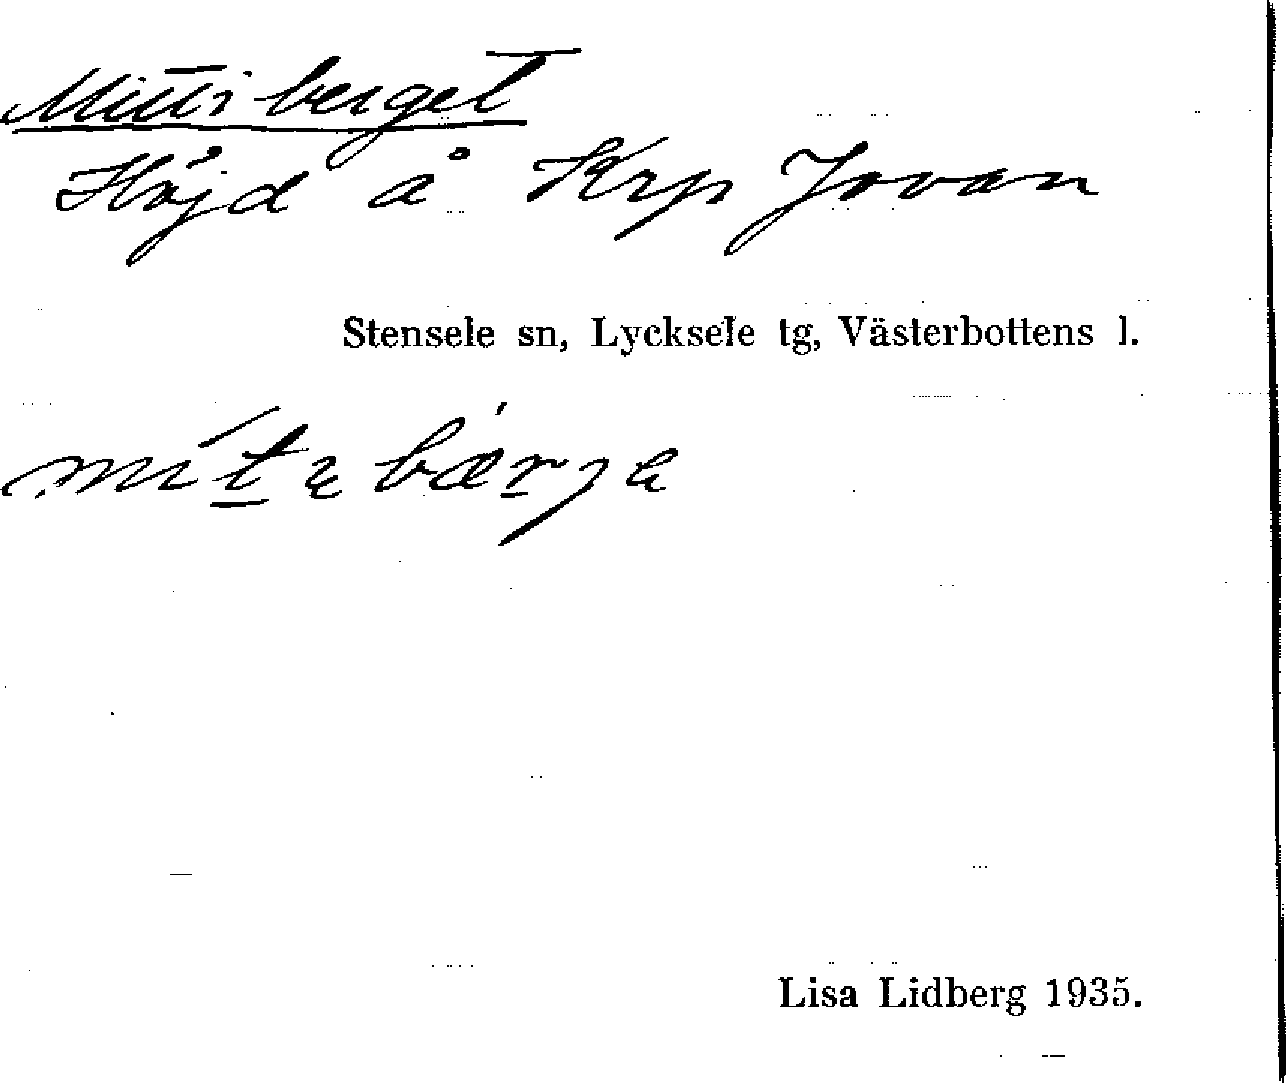 Mittiberget
Höjd å Krp Jovan
Stensele sn, Lycksele tg, Västerbottens l.
Lisa Lidberg 1935.